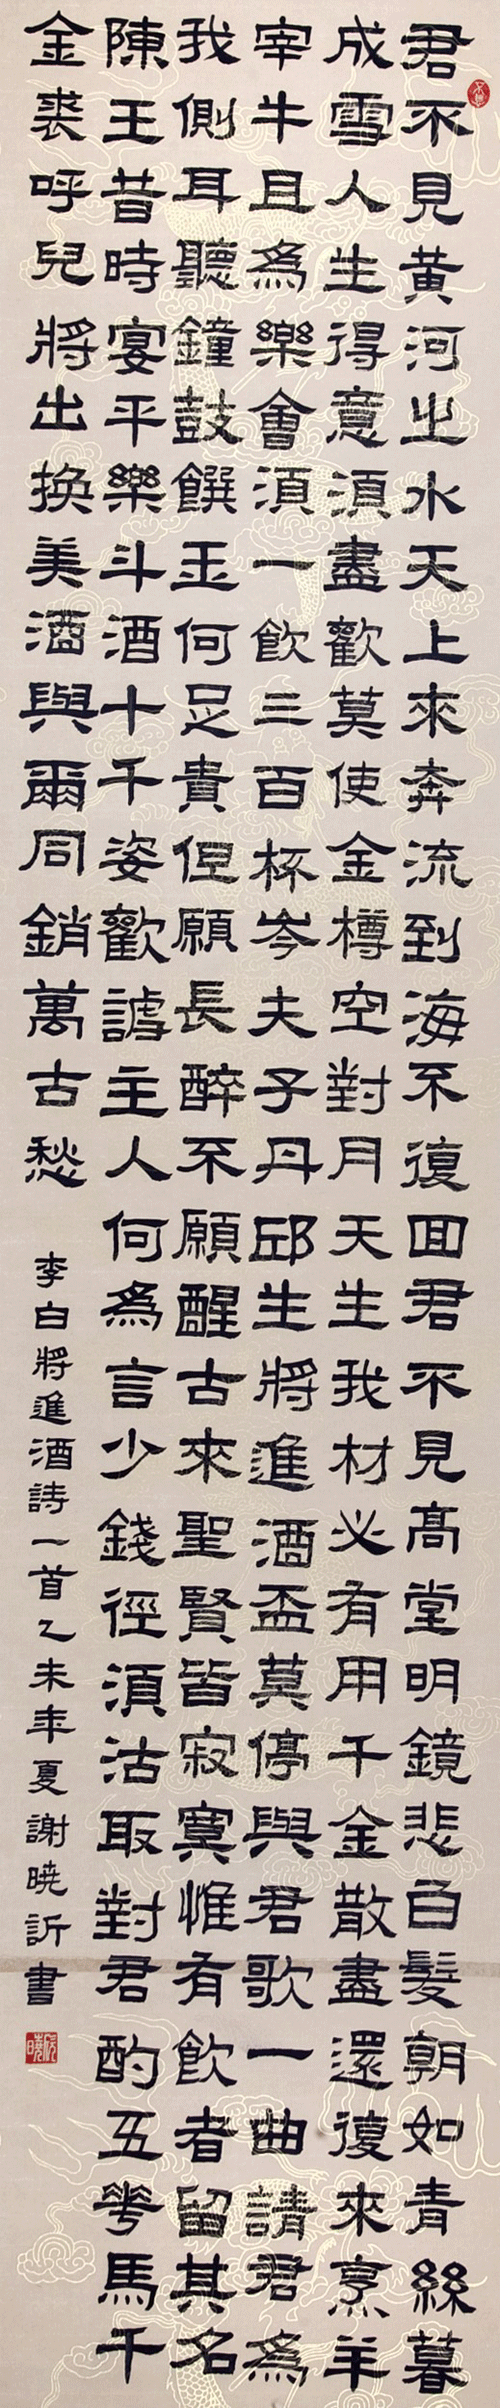 君不見黄河之水天上來奔流到海不復回君不見高堂明鏡悲白髮朝如青絲暮
成雪人生得意須盡歡莫使金樽空對月天生我材必有用千金散盡還復來烹羊
宰牛且為樂會須一飲三百杯岑夫子丹邱生將進酒盃莫停與君歌一曲請君為
我側耳聽鐘鼓饌玉何足貴但願長醉不願醒古來聖賢皆寂寞惟有飲者留其名
陳王昔時宴平樂斗酒十千姿歡謔主人何為言少錢徑須沽取對君酌五花馬千
金裘呼兒將出換美酒與爾同銷萬古愁
李白將進酒詩一首乙未年夏謝曉訢書